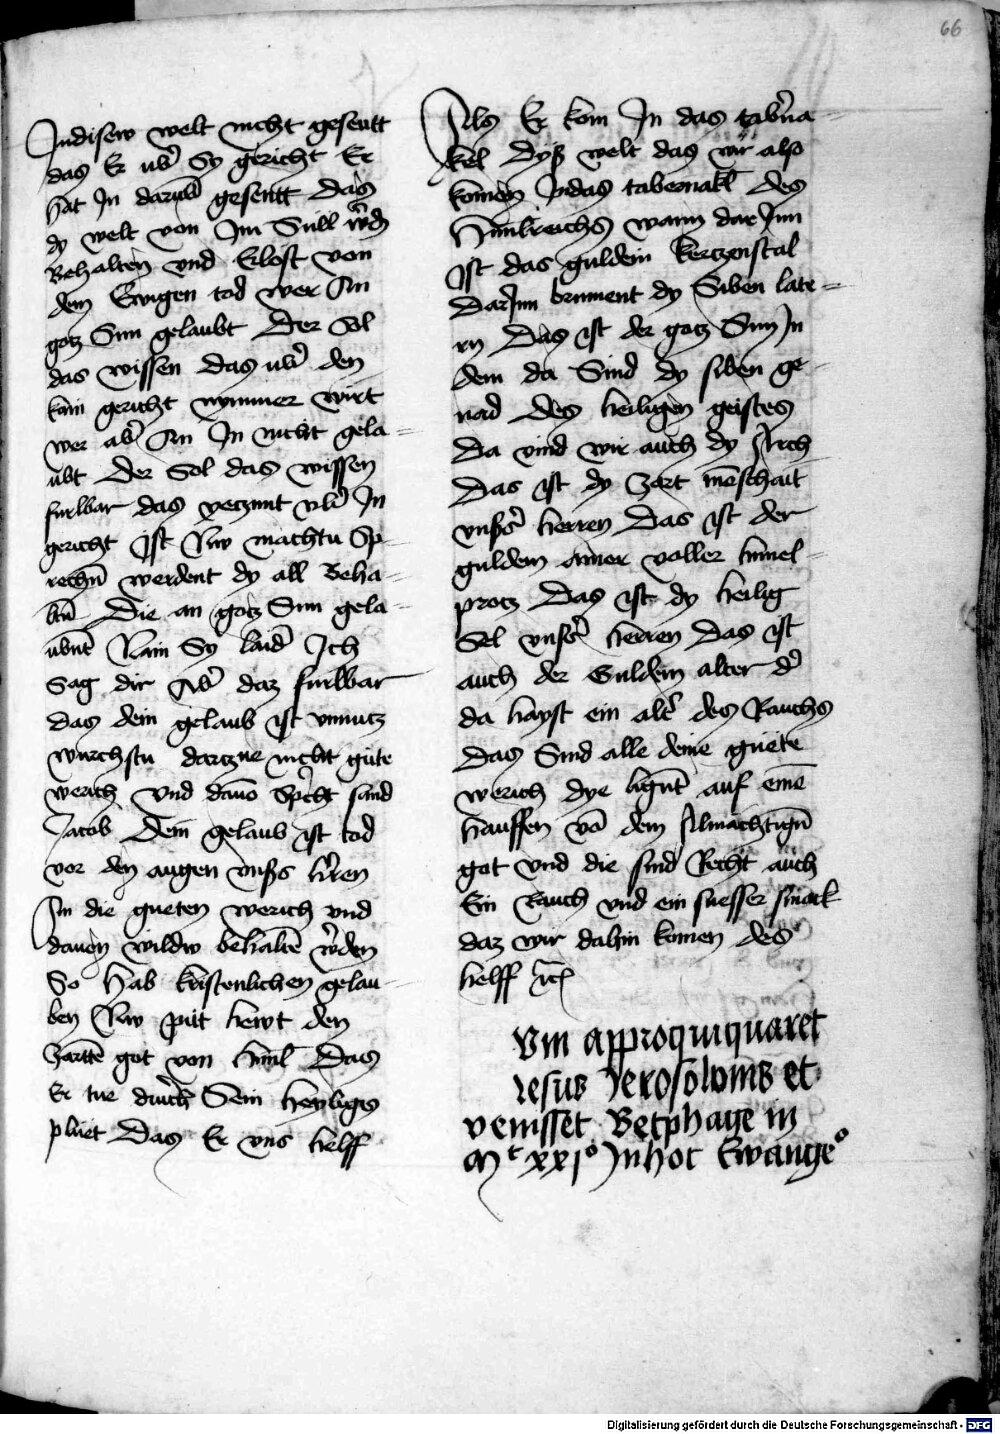 66
Indisew welt nicht gesentt
das Er uber̄ Sy gericht Er
hat In darumb gesentt Das
dy welt von Im Sull wˀdn
Behalten vnd Erlost von
dem Ewigen tod wer An
gotz Sun gelaubt Der Sol
das wissen das ubˀ den
kain gericht nymmer wirt
wer abˀ An In nicht gela=
ubt Der Sol das wissen
furbar das yeczunt ubˀ In
gericht Ist Nw machtu Sp=
rechn̄ werdent dy all Beha=
ltn̄ Die an gotz Sun gela=
ubnt̄ Nain Sy laidˀ Ich
Sag dir Abˀ daz furbar
das dein gelaub ist vnnutz
wurchstu darczue nicht gute
werich Vnd dauō Spˀcht sand
Jacob Dein gelaub ist tod
vor den augen vnsˀs hˀren
An die gueten werich vnd
dauon wildw behaltē wˀden
So hab kristenlichen gelau=
ben Nw piit hewt den
zarttē got von himl̄ Das
Er tue durich Sein heyligs
pluet Das Er vns helff
Als Er kom In das tabˀna=
kel Dyss welt das wir also
komen Indas tabernakl̄ des
Himlreichs wann dar Inn
Ist das guldein kerczenstal
DarInn brinnent dy Siben late=
rn Das ist der gotz Sun In
dem da Sind dy siben ge=
nad des heiligen geistes
Da vind wir auch dy Arch
Das ist dy zart mēschait
vnsˀs herren Das ist der
guldein aimer voller himel=
protz Das ist dy heilig
Sel vnsˀs herren Das ist
auch der Guldein alter dˀ
da hayst ein altˀ des Rauchs
Das Sind alle deine guete
werich dye lignt̄ auf einē
hauffen vō dem Almachtign̄
got Vnd die sind Recht auch
Ein Rauch vnd ein suesser smack
daz wir dahin komen des
helff rc̄
Vm approquiquaret
iesus Ierosolomis et
venisset Betphage in
Mt xxjo In hoc Ewangeo
Digitalisierung gefördert durch die Deutsche Forschungsgemeinschaft - DFG